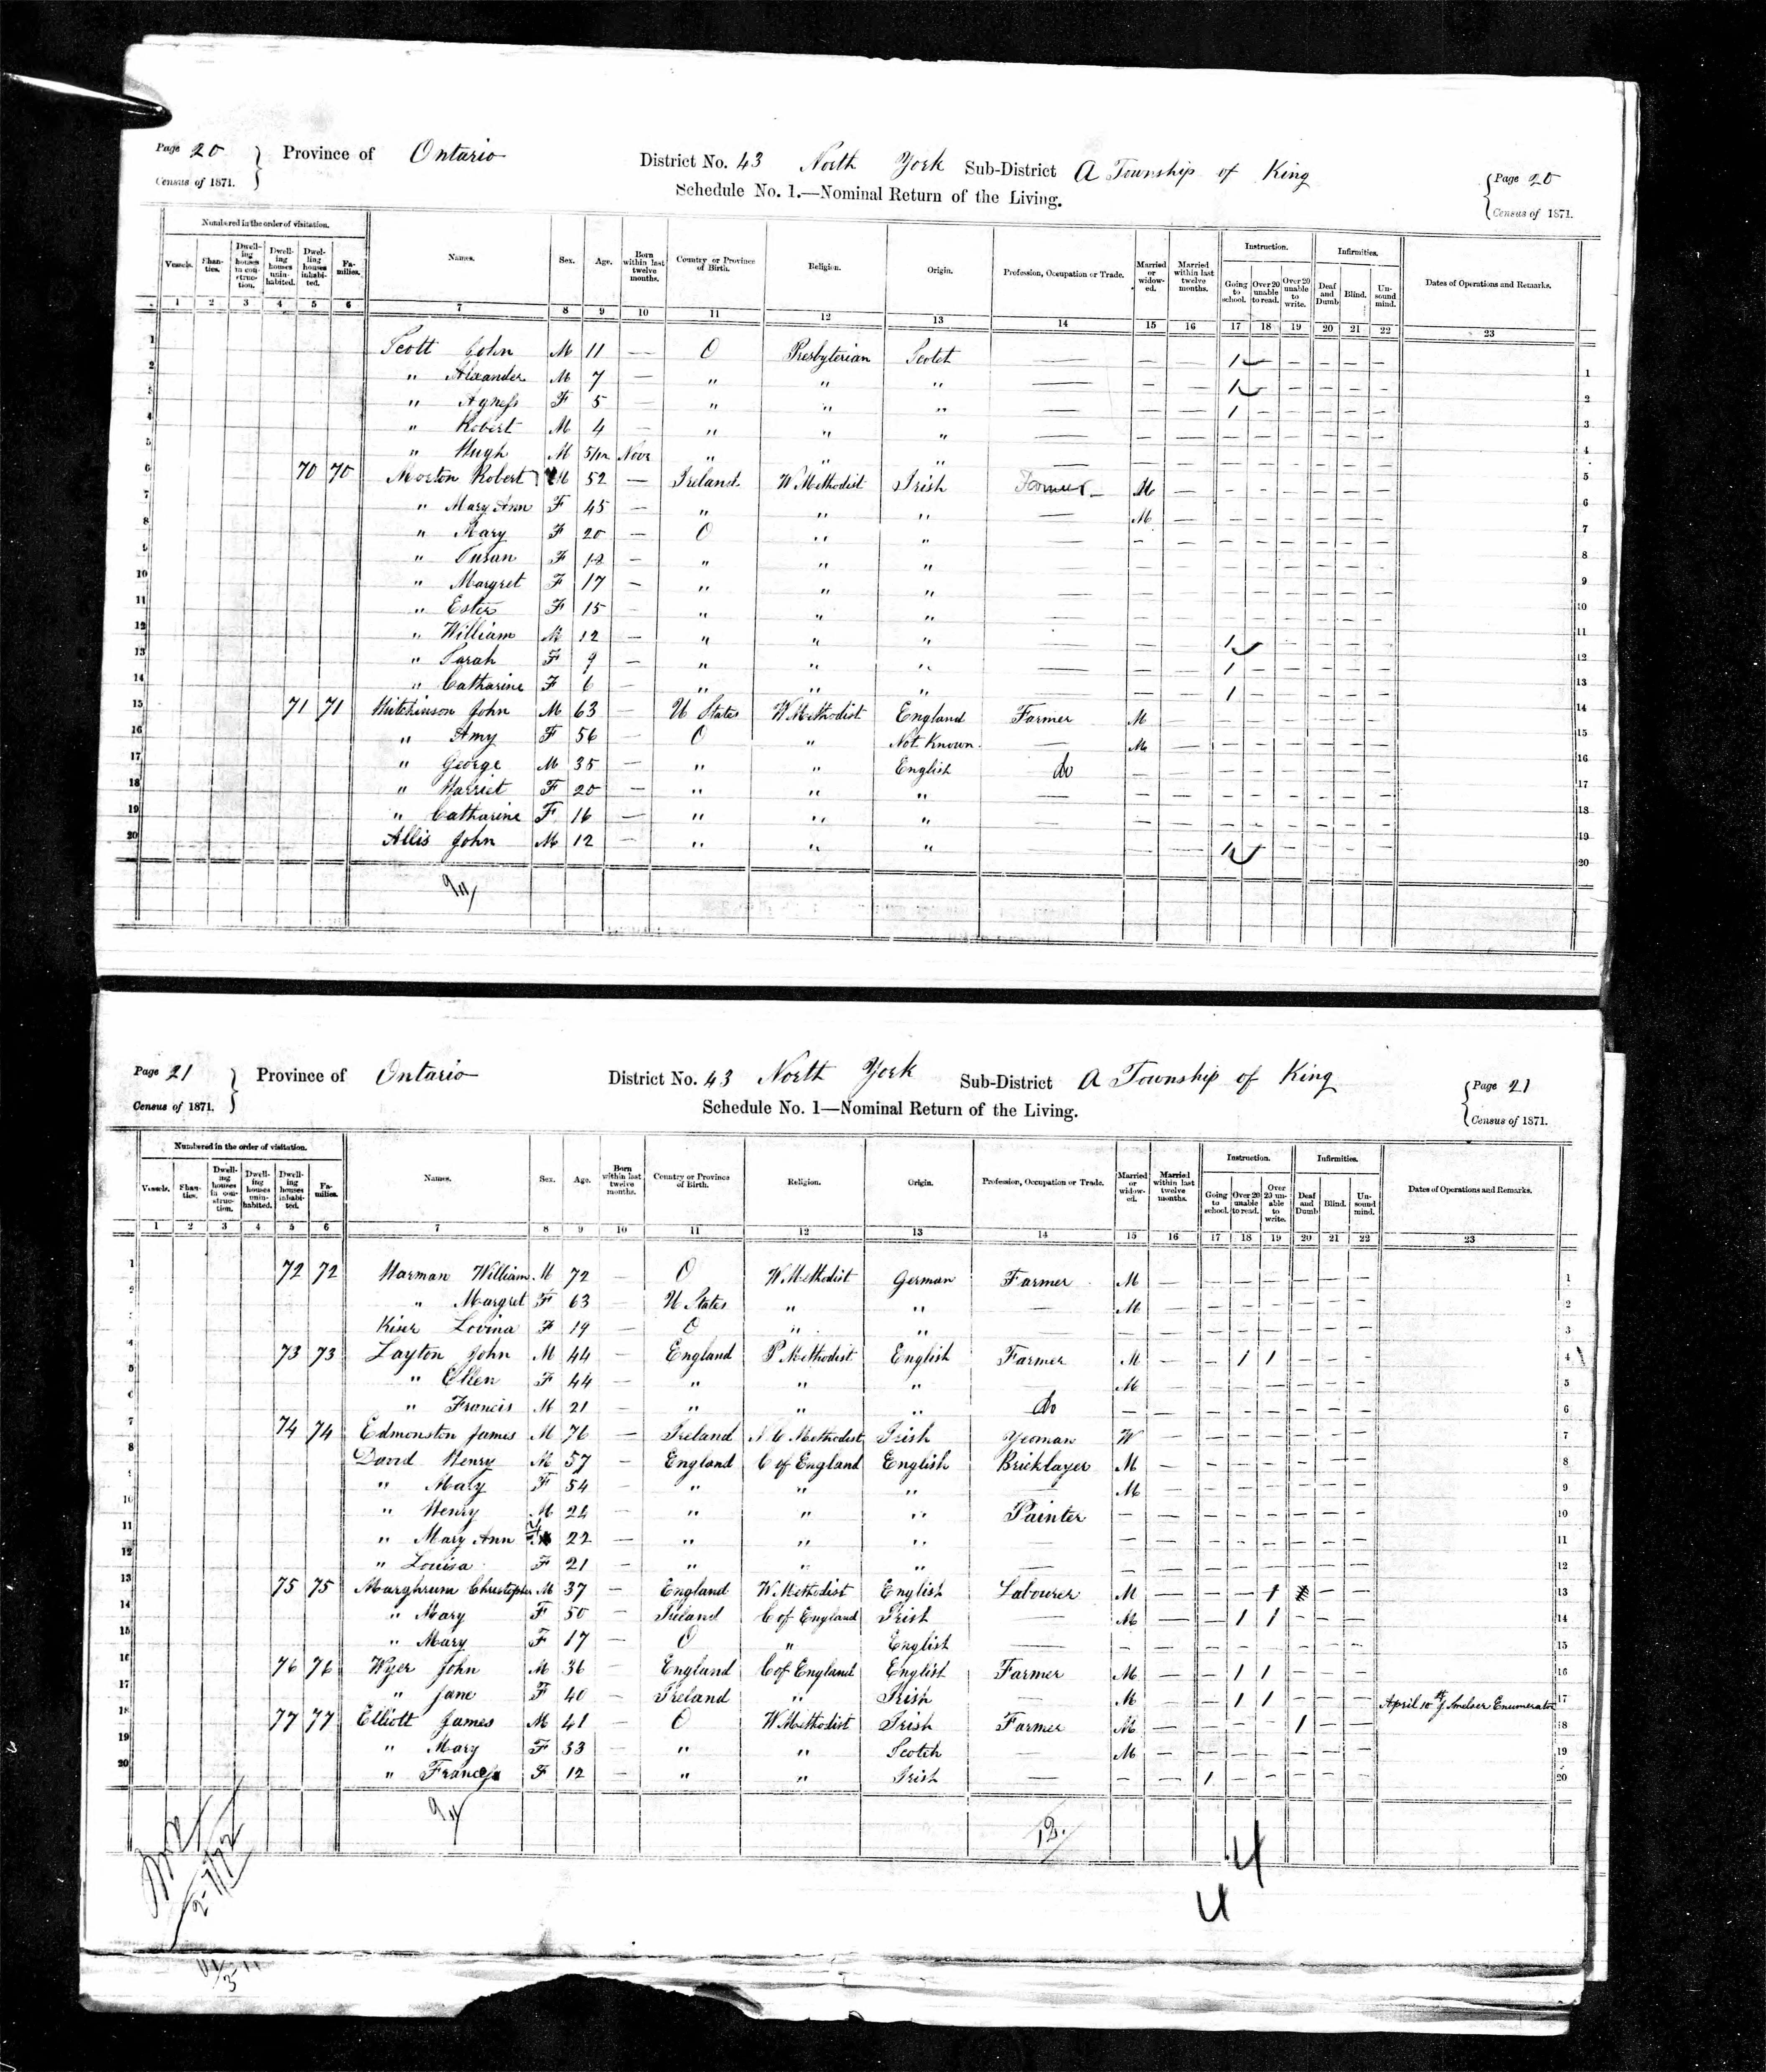 Page 20 } Province of Ontario District No. 43 North York Sub-District A Township of King { Page 20
Census of 1871. Schedule No. 1.—Nominal Return of the Living. Census of 1871.
Numbered in the order of visitation. Instruction. Infirmities.
Vessels. Shanties. Dwelling houses in construction. Dwelling houses uninhabited. Dwelling houses inhabited. Families. Names. Sex. Age. Born within last twelve months. Country or Province of Birth. Religion. Origin. Profession, Occupation or Trade. Married or widowed. Married within last twelve months. Going to school. Over 20 unable to read. Over 20 unable to write. Deaf and Dumb Blind. Unsound mind. Dates of Operations and Remarks.
1 2 3 4 5 6 7 8 9 10 11 12 13 14 15 16 17 18 19 20 21 22 23
1 Scott John M 11 — O Presbyterian Scotch — — 1 — — — — — 1
2 " Alexander M 7 — " " " — — — 1 — — — — — 2
3 " Agness F 5 — " " " — — — 1 — — — — — 3
4 " Robert M 4 — " " " — — — — — — — — — 4
5 " Hugh M 5/12 Novr " " " — — — — — — — — — 5
6 70 70 Morton Robert M 52 — Ireland W Methodist Irish Farmer M — — — — — — —
7 " Mary Ann F 45 — " " " — M — — — — — — — 6
8 " Mary F 20 — O " " — — — — — — — — — 7
9 " Susan F 18 — " " " — — — — — — — — — 8
10 " Margret F 17 — " " " — — — — — — — — — 9
11 " Ester F 15 — " " " — — — — — — — — — 10
12 " William M 12 — " " " — — — 1 — — — — — 11
13 " Sarah F 9 — " " " — — — 1 — — — — — 12
14 " Catharine F 6 — " " " — — — 1 — — — — — 13
15 71 71 Hutchinson John M 63 — U States W Methodist England Farmer M — — — — — — — 14
16 " Amy F 56 — O " Not Known. — M — — — — — — — 15
17 " George M 35 — " " English do — — — — — — — — 16
18 " Harriet F 20 — " " " — — — — — — — — — 17
19 " Catharine F 16 — " " " — — — — — — — — — 18
20 Allis John M 12 — " " " — — — 1 — — — — — 19
20
9/11
Page 21 } Province of Ontario District No. 43 North York Sub-District A Township of King { Page 21
Census of 1871. Schedule No. 1—Nominal Return of the Living. Census of 1871.
Numbered in the order of visitation. Instruction. Infirmities.
Vessels. Shanties. Dwelling houses in construction. Dwelling houses uninhabited. Dwelling houses inhabited. Families. Names. Sex. Age. Born within last twelve months. Country or Province of Birth. Religion. Origin. Profession, Occupation or Trade. Married or widowed. Married within last twelve months. Going to school. Over 20 unable to read. Over 20 unable to write. Deaf and Dumb Blind. Unsound mind. Dates of Operations and Remarks.
1 2 3 4 5 6 7 8 9 10 11 12 13 14 15 16 17 18 19 20 21 22 23
1 72 72 Harman William M 72 — O W. Methodist German Farmer M — — — — — — — 1
2 " Margret F 63 — U States " " — M — — — — — — — 2
Kiser Lovina F 19 — O " " — — — — — — — — — 3
4 73 73 Layton John M 44 — England P Methodist English Farmer M — — 1 1 — — — 4
5 " Ellen F 44 — " " " — M — — — — — — — 5
6 " Francis M 21 — " " " do — — — — — — — — 6
7 74 74 Edmonston James M 76 — Ireland N C Methodist Irish Yeoman W — — — — — — — 7
8 David Henry M 57 — England C of England English Bricklayer M — — — — — — — 8
9 " Maty F 54 — " " " — M — — — — — — — 9
10 " Henry M 24 — " " " Painter — — — — — — — — 10
11 " Mary Ann F 22 — " " " — — — — — — — — — 11
12 " Louisa F 21 — " " " — — — — — — — — — 12
13 75 75 Marghrum Christopher M 37 — England W. Methodist English Labourer M — — — 1 — — 13
14 " Mary F 50 — Ireland C of England Irish — M — — 1 1 — — — 14
15 " Mary F 17 — O " English — — — — — — — — — 15
16 76 76 Wyer John M 36 — England C of England English Farmer M — — 1 1 — — — 16
17 " Jane F 40 — Ireland " Irish — M — — 1 1 — — — April 10th J Smelser Enumerator 17
18 77 77 Elliott James M 41 — O W. Methodist Irish Farmer M — — — — 1 — — 18
19 " Mary F 33 — " " Scotch — M — — — — — — — 19
20 " Francess F 12 — " " Irish — — — 1 — — — — — 20
9/11 13. 4
4